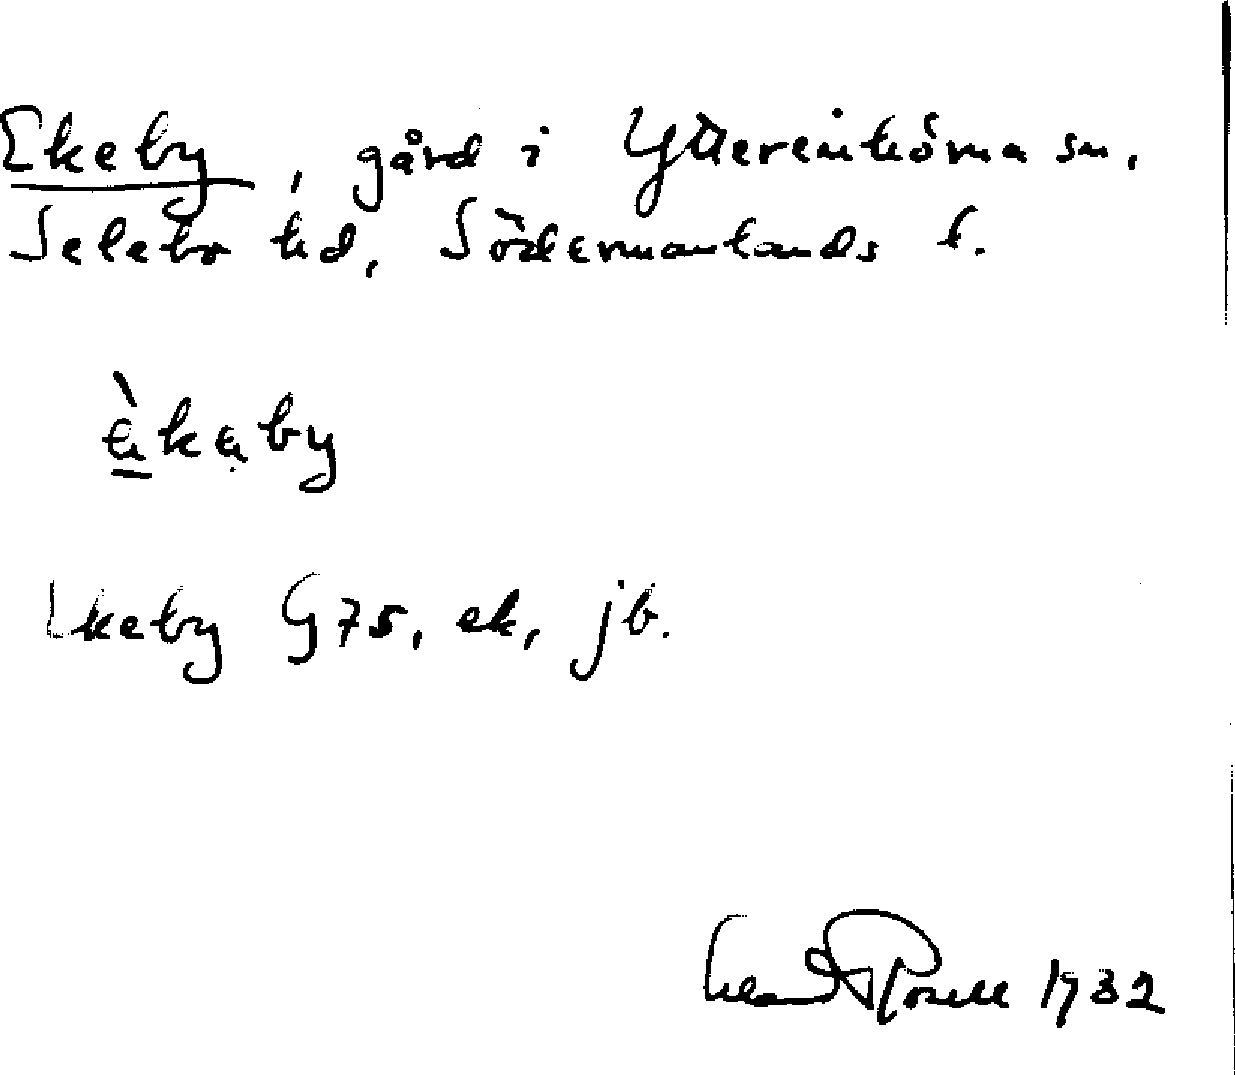 Ekeby, gård i Ytterenhörna sn.
Selebo hd, Södermanlands l.
èkeby
Ekeby G 75, ek, jb.
1932